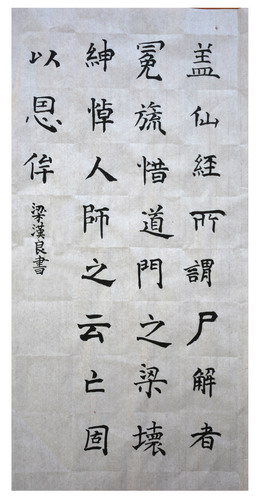 盖仙經所謂尸解者
冕旒惜道門之梁壞
紳悼人師之云亡固
以恩侔
梁漢良書